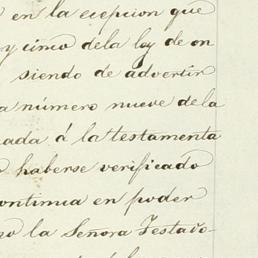 en la ecepcion que
y cinco dela ley de on
siendo de advertir
a número nueve dela
ada á la testamenta
haberse verificado
continua en poder
la Señora Testado-